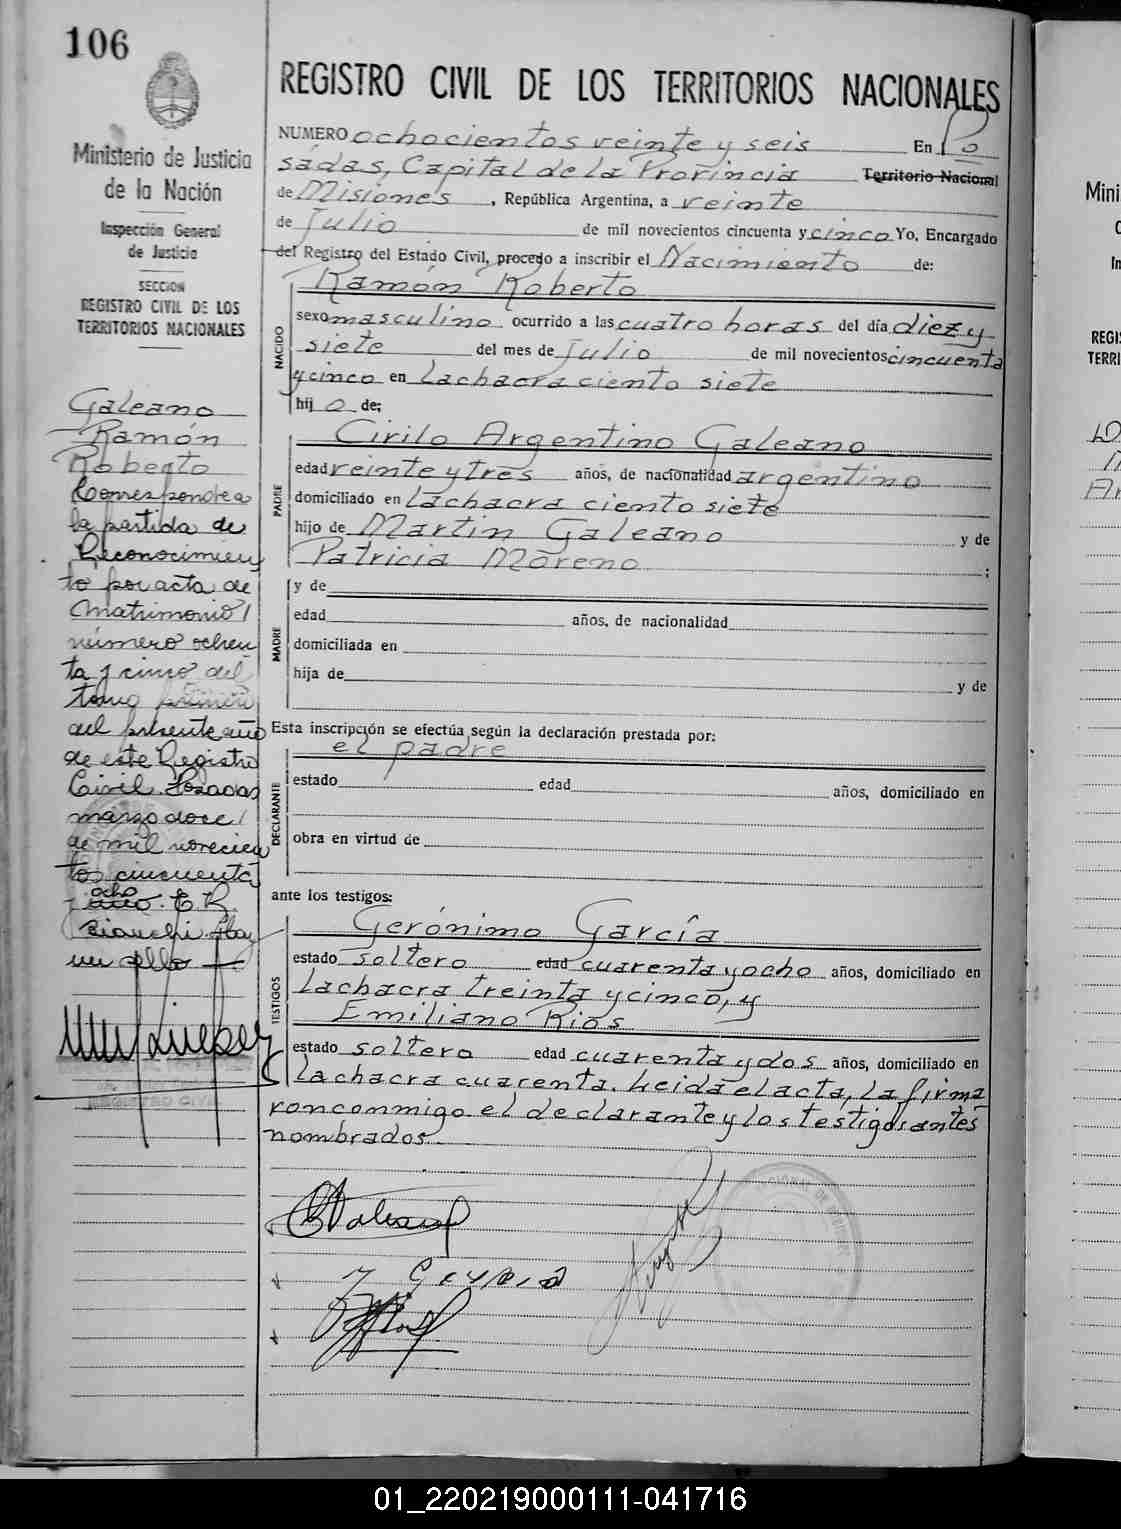 106
Ministerio de Justicia
de la Nación
Inspección General
de Justicia
SECCION
REGISTRO CIVIL DE LOS
TERRITORIOS NACIONALES
Galeano
Ramón
Roberto
Corresponde a
la partida de
Reconocimien
to por acta de
Matrimonio
número ochen
ta y cinco del
tomo primero
del presente año
de este Registro
Civil. Posadas
marzo doce
de mil novecien
tos cincuenta
y ocho. E. R.
REGISTRO CIVIL DE LOS TERRITORIOS NACIONALES
NUMERO ochocientos veinte y seis En Po
sadas, Capital de la Provincia Territorio Nacional
de Misiones, República Argentina, a veinte
de Julio de mil novecientos cincuenta y cinco Yo, Encargado
del Registro del Estado Civil, procedo a inscribir el Nacimiento de:
Ramón Roberto
NACIDO
sexo masculino ocurrido a las cuatro horas del día diez y
siete del mes de Julio de mil novecientos cincuenta
y cinco en Lachacra ciento siete
hij o de:
Cirilo Argentino Galeano
PADRE
edad veinte y tres años, de nacionalidad argentino
domiciliado en Lachacra ciento siete
hijo de Martin Galeano y de
Patricia Moreno ;
y de
MADRE
edad años, de nacionalidad
domiciliada en
hija de y de
Esta inscripción se efectúa según la declaración prestada por:
el padre
DECLARANTE
estado edad años, domiciliado en
obra en virtud de
ante los testigos:
Gerónimo García
TESTIGOS
estado soltero edad cuarenta y ocho años, domiciliado en
Lachacra treinta y cinco, y
Emiliano Rios
estado soltero edad cuarenta y dos años, domiciliado en
Lachacra cuarenta. Leida el acta, la firma
ron conmigo el declarante y los testigos antes
nombrados.
Mini
REGI
TERRI
01_220219000111-041716